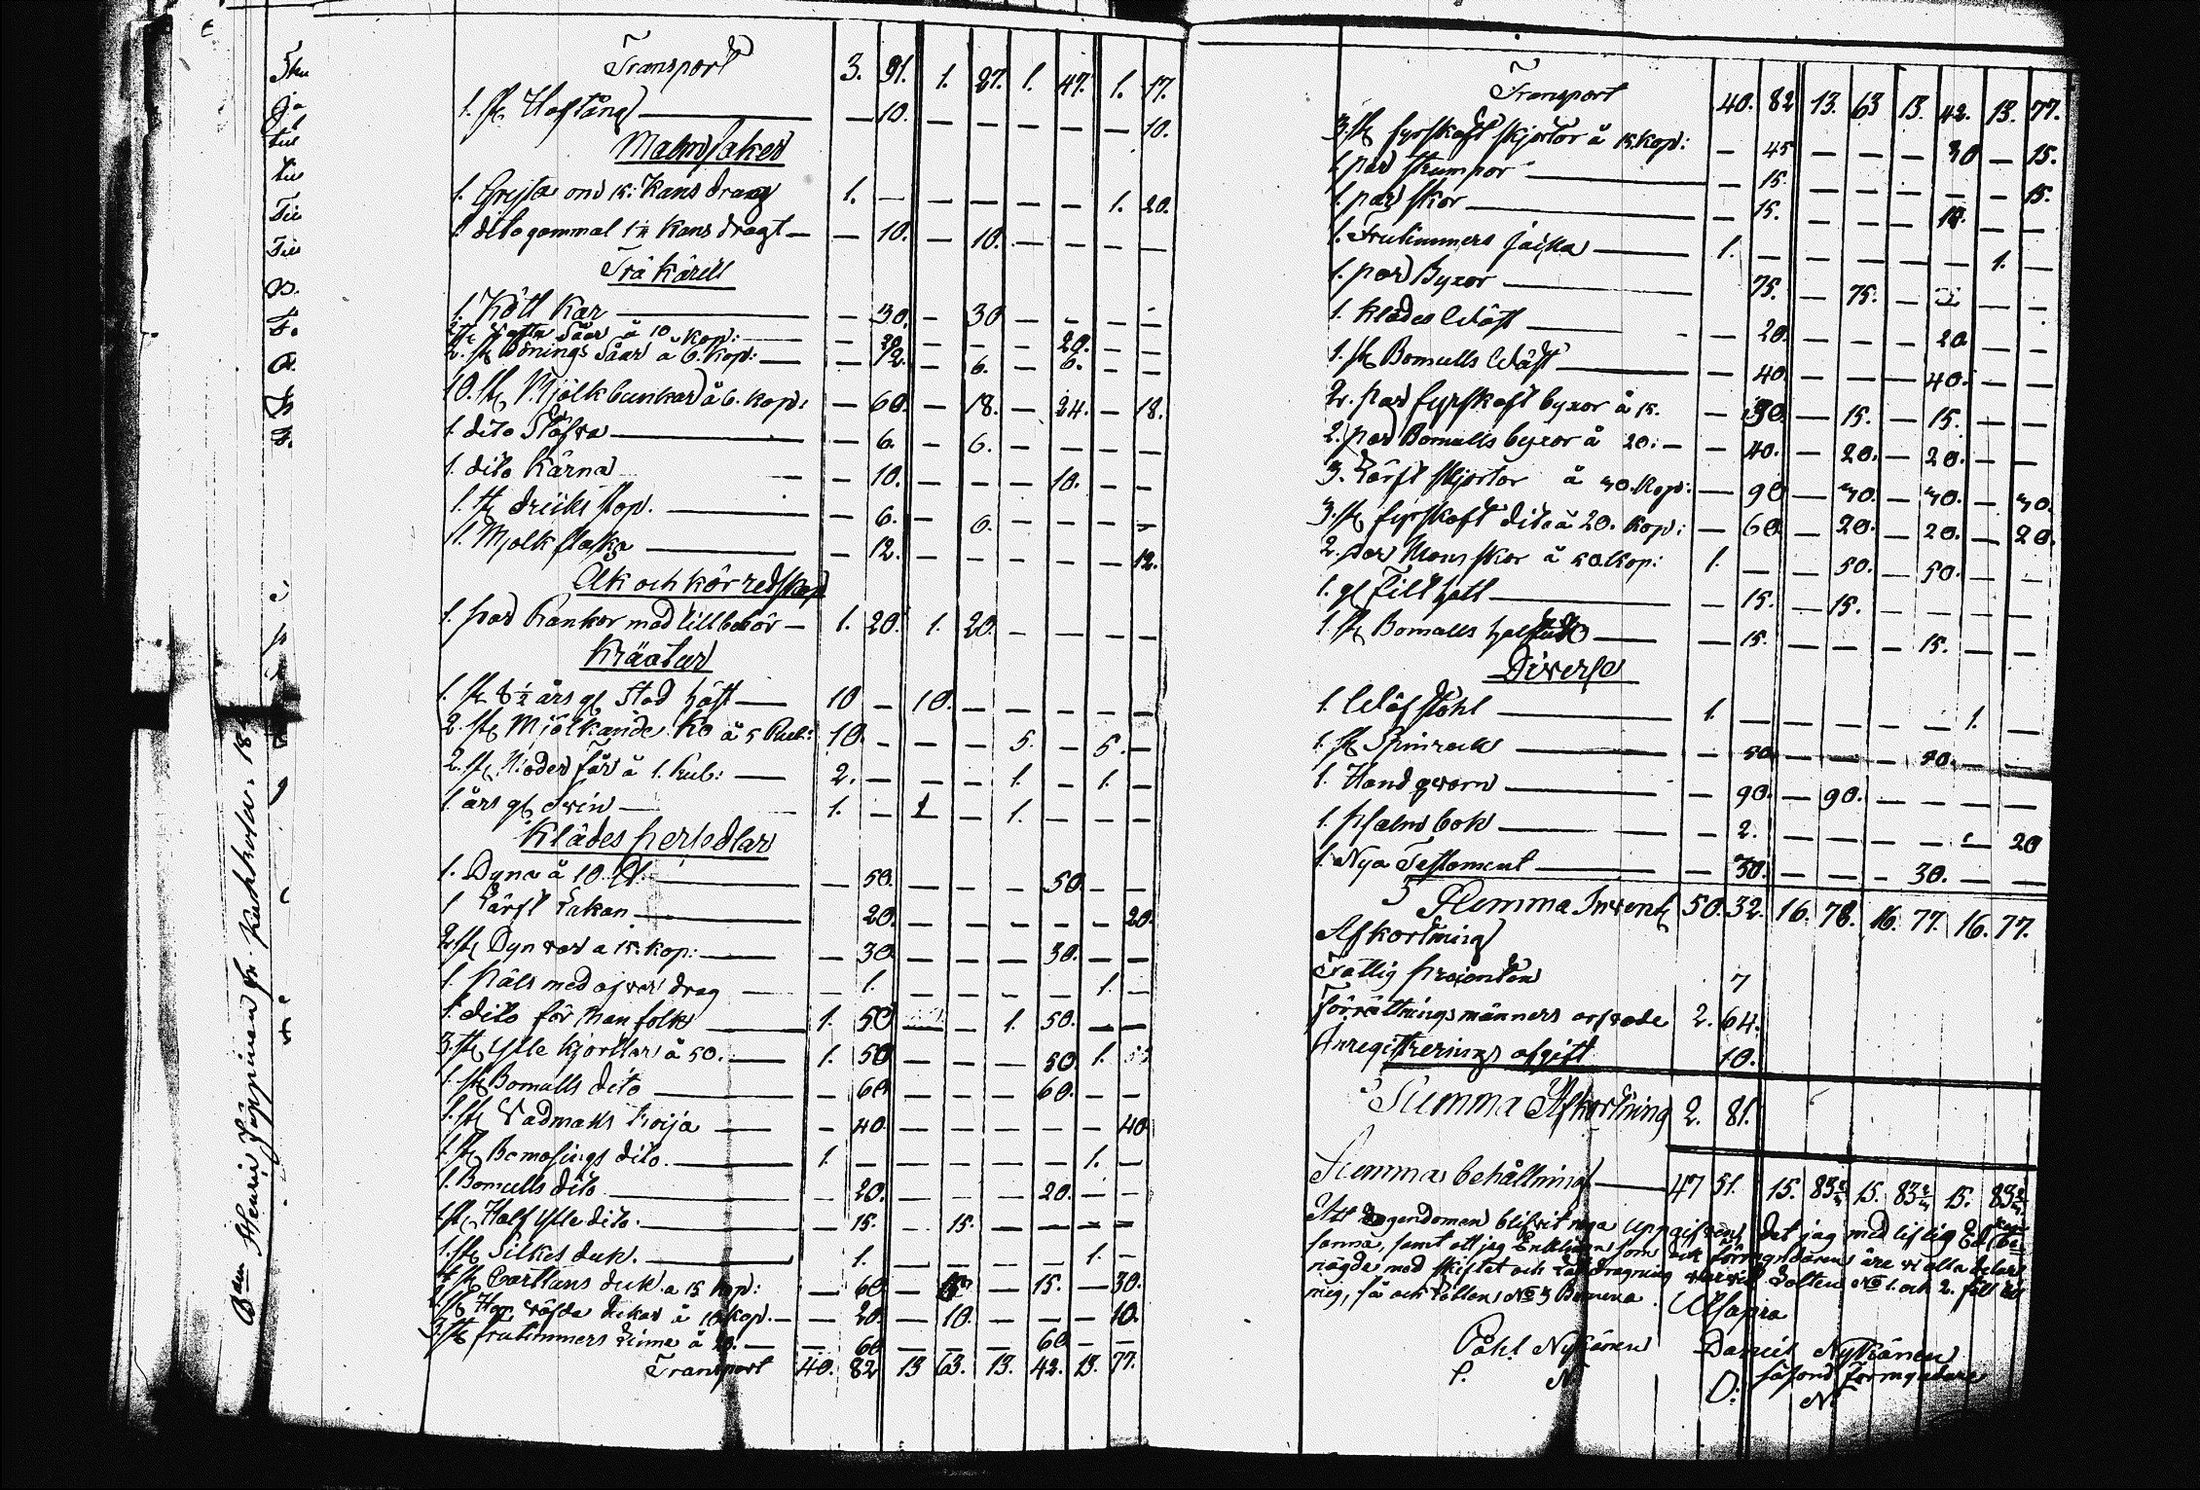 Transport 3. 91. 1. 27. 1. 47. 1. 17.
1. st Hoftång — 10. — — — — — 10.
Malmsaker
1. Gryta om 15: Kans dragt 1. — — — — — 1. 20.
1 dito gammal 1 ½ Kans dragt — — 10. — 10. — — — —
Trä käril
1. Kött Kar — 30. — 30 — — — —
2. st Vattu Såar å 10 Kop: — 20. — — — 20. — —
2. st Bönings Såar å 6. Kop: — 12. — 6. — 6. — —
10. st Mjölkbunkar å 6. Kop: — 60. — 18. — 24. — 18.
1. dito Stäfva — 6. — 6. — — — —
1. dito Kärna — 10. — — — 10. — —
1. st dricks stop. — 6. — 6. — — — —
1. Mjolk flaska — 12. — — — — — 12.
Åk och kör redskap
1. par Kankor med tillbehör — 1. 20. 1. 20. — — — —
Kräatur
1. st 8 ½ års gl Stod häst — 10 — 10. — — — — —
2. st Mjölkande Ko å 5 Rub: 10. — — — 5. — 5. —
2. st Moder får å 1. Rub: — 2. — — — 1. — 1. —
1. års gl Svin — 1. — — 1. —
Klädes persedlar
1. Dyna å 10 — 50. — — — 50. — —
1 Lärft Lakan — 20. — — — — — 20.
2. st Dyn var a 15. kop: — 30. — — — 30. — —
1. Päls med ojver drag — 1. — — — — 1. —
1. dito för Manfolk — 1. 50 — — 1. 50. — —
3. st Ylle kjortlar å 50. — 1. 50 — — — 50. 1.
1. st Bomulls dito — 60. — — — 60. — —
1. st Vadmals tröija — 40. — — — — — 40
1. st Bomasings dito. — 1. — — — — — 1. —
1. Bomulls dito — 20. — — — 20. — —
1 st Half Ylle dito. — 15. — 15. — — — —
1. st Silkes duk. — 1. — — — — 1. —
4 st Qvartlans duk a 15 kop: — 60 — — 15. — 30.
2 st dukar å 10 kop. — 20. — 10. — — — 10.
3. st fruntimmers å 20. — 60 — — — 60 — —
Transport 40. 82 13 63. 13. 42. 13. 77.
Transport 40. 82 13. 63 13. 42. 13. 77.
3. st fyrskaft skjortor å 15. Kop: — 45 — — — 30 — 15.
1. par Strumpor — 15. — — — — — 15.
1. par skor — 15. — — — —
1. Fruntimmers Jacka — 1. — — — — — 1. —
1. par Byxor — 75. — 75. — — —
1. Klädes Wäst — 20. — — — 20 — —
1. st Bomulls Wäst — 40. — — — 40. — —
2. par fyrskaft byxor å 15. — 30. — 15. — 15. — —
2. par Bomulls byxor å 20: — 40. — 20. — 20. — —
3. Lärft skjortor å 30. Kop: — 90 — 30. — 30. — 30.
3. st fyrskaft dito å 20. Kop: — 60. — 20. — 20. — 20.
2. par Mans skor å 50. Kop: 1. — — 50. — 50. — —
1. gl Filt hatt — 15. — 15. — — — —
1. st Bomulls halsduk — 15. — — — 15. — —
Diverse
1. Wäfstohl — 1. — — — — — 1. —
1. st Spinrock — 50. — — — 50. — —
1. Handqvarn — 90. — 90. — — — —
1. Psalm bok — 2. — — — — 20
1. Nya Testament — 30. — — — 30. — —
Summa Invent 50. 32. 16. 78. 16. 77. 16. 77.
Afkortning
Fattig procenten 7
Förrättnings männers arfvode 2. 64.
Inregistrerings afgift 10.
Summa Afkortning 2. 81.
Summa behållning — 47 51. 15. 83 2/3 15. 83 2/3 15. 83 2/3
Att Egendomen blifvit noga uppgifven, det jag med liflig Ed kan
sanna, samt att jag Enklingen som och förmyndaren äre vi alla delare
nögde med skiftet och Lottdragning varvid Lotten No 1. och 2. föll åt
mig, så och Lotten No 3
Påhl Nykänen Daniel Nykänen
P. N. såsond förmyndare
D. N.
8. den Henrik Jäppinen fr. Kukkola. 18